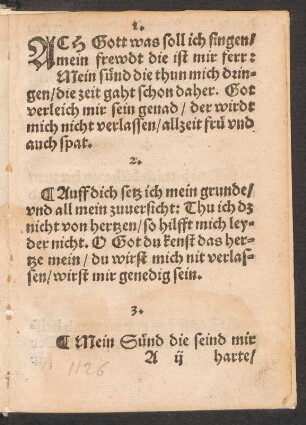 1.
ACH Gott was soll ich singen/
mein frewdt die ist mir ferr:
Mein sünd die thun mich drin-
gen/die zeit gaht schon daher. Got
verleich mir sein genad/der wirdt
mich nicht verlassen/allzeit frü vnd
auch spat.
2.
¶ Auff dich setz ich mein grunde/
vnd all mein zuuersicht: Thu ich dz
nicht von hertzen/so hilfft mich ley-
der nicht. O Gott du kenst das her-
tze mein/du wirst mich nit verlas-
sen/wirst mir genedig sein.
3.
¶ Mein Sünd die seind mir
A ij harte/
1126